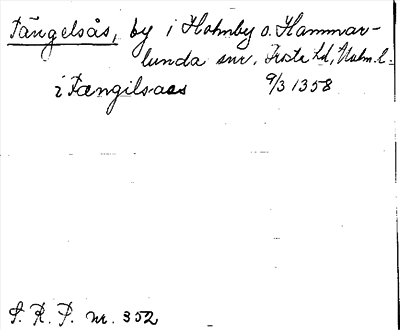 Tängelsås, by i Hohnby o. Hammar-
lunda snr, Frosta hd, Malm. l.
i Tængilsaas 9/3 1358
S. R. P. nr. 352